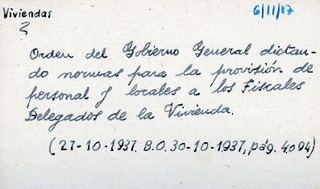 Viviendas
6/11/37
Orden del Gobierno General dictan-
do normas para la provisión de
personal y locales a los Fiscales
Delegados de la Vivienda.
(27-10-1937. B.O. 30-10-1937, pág. 4.094)